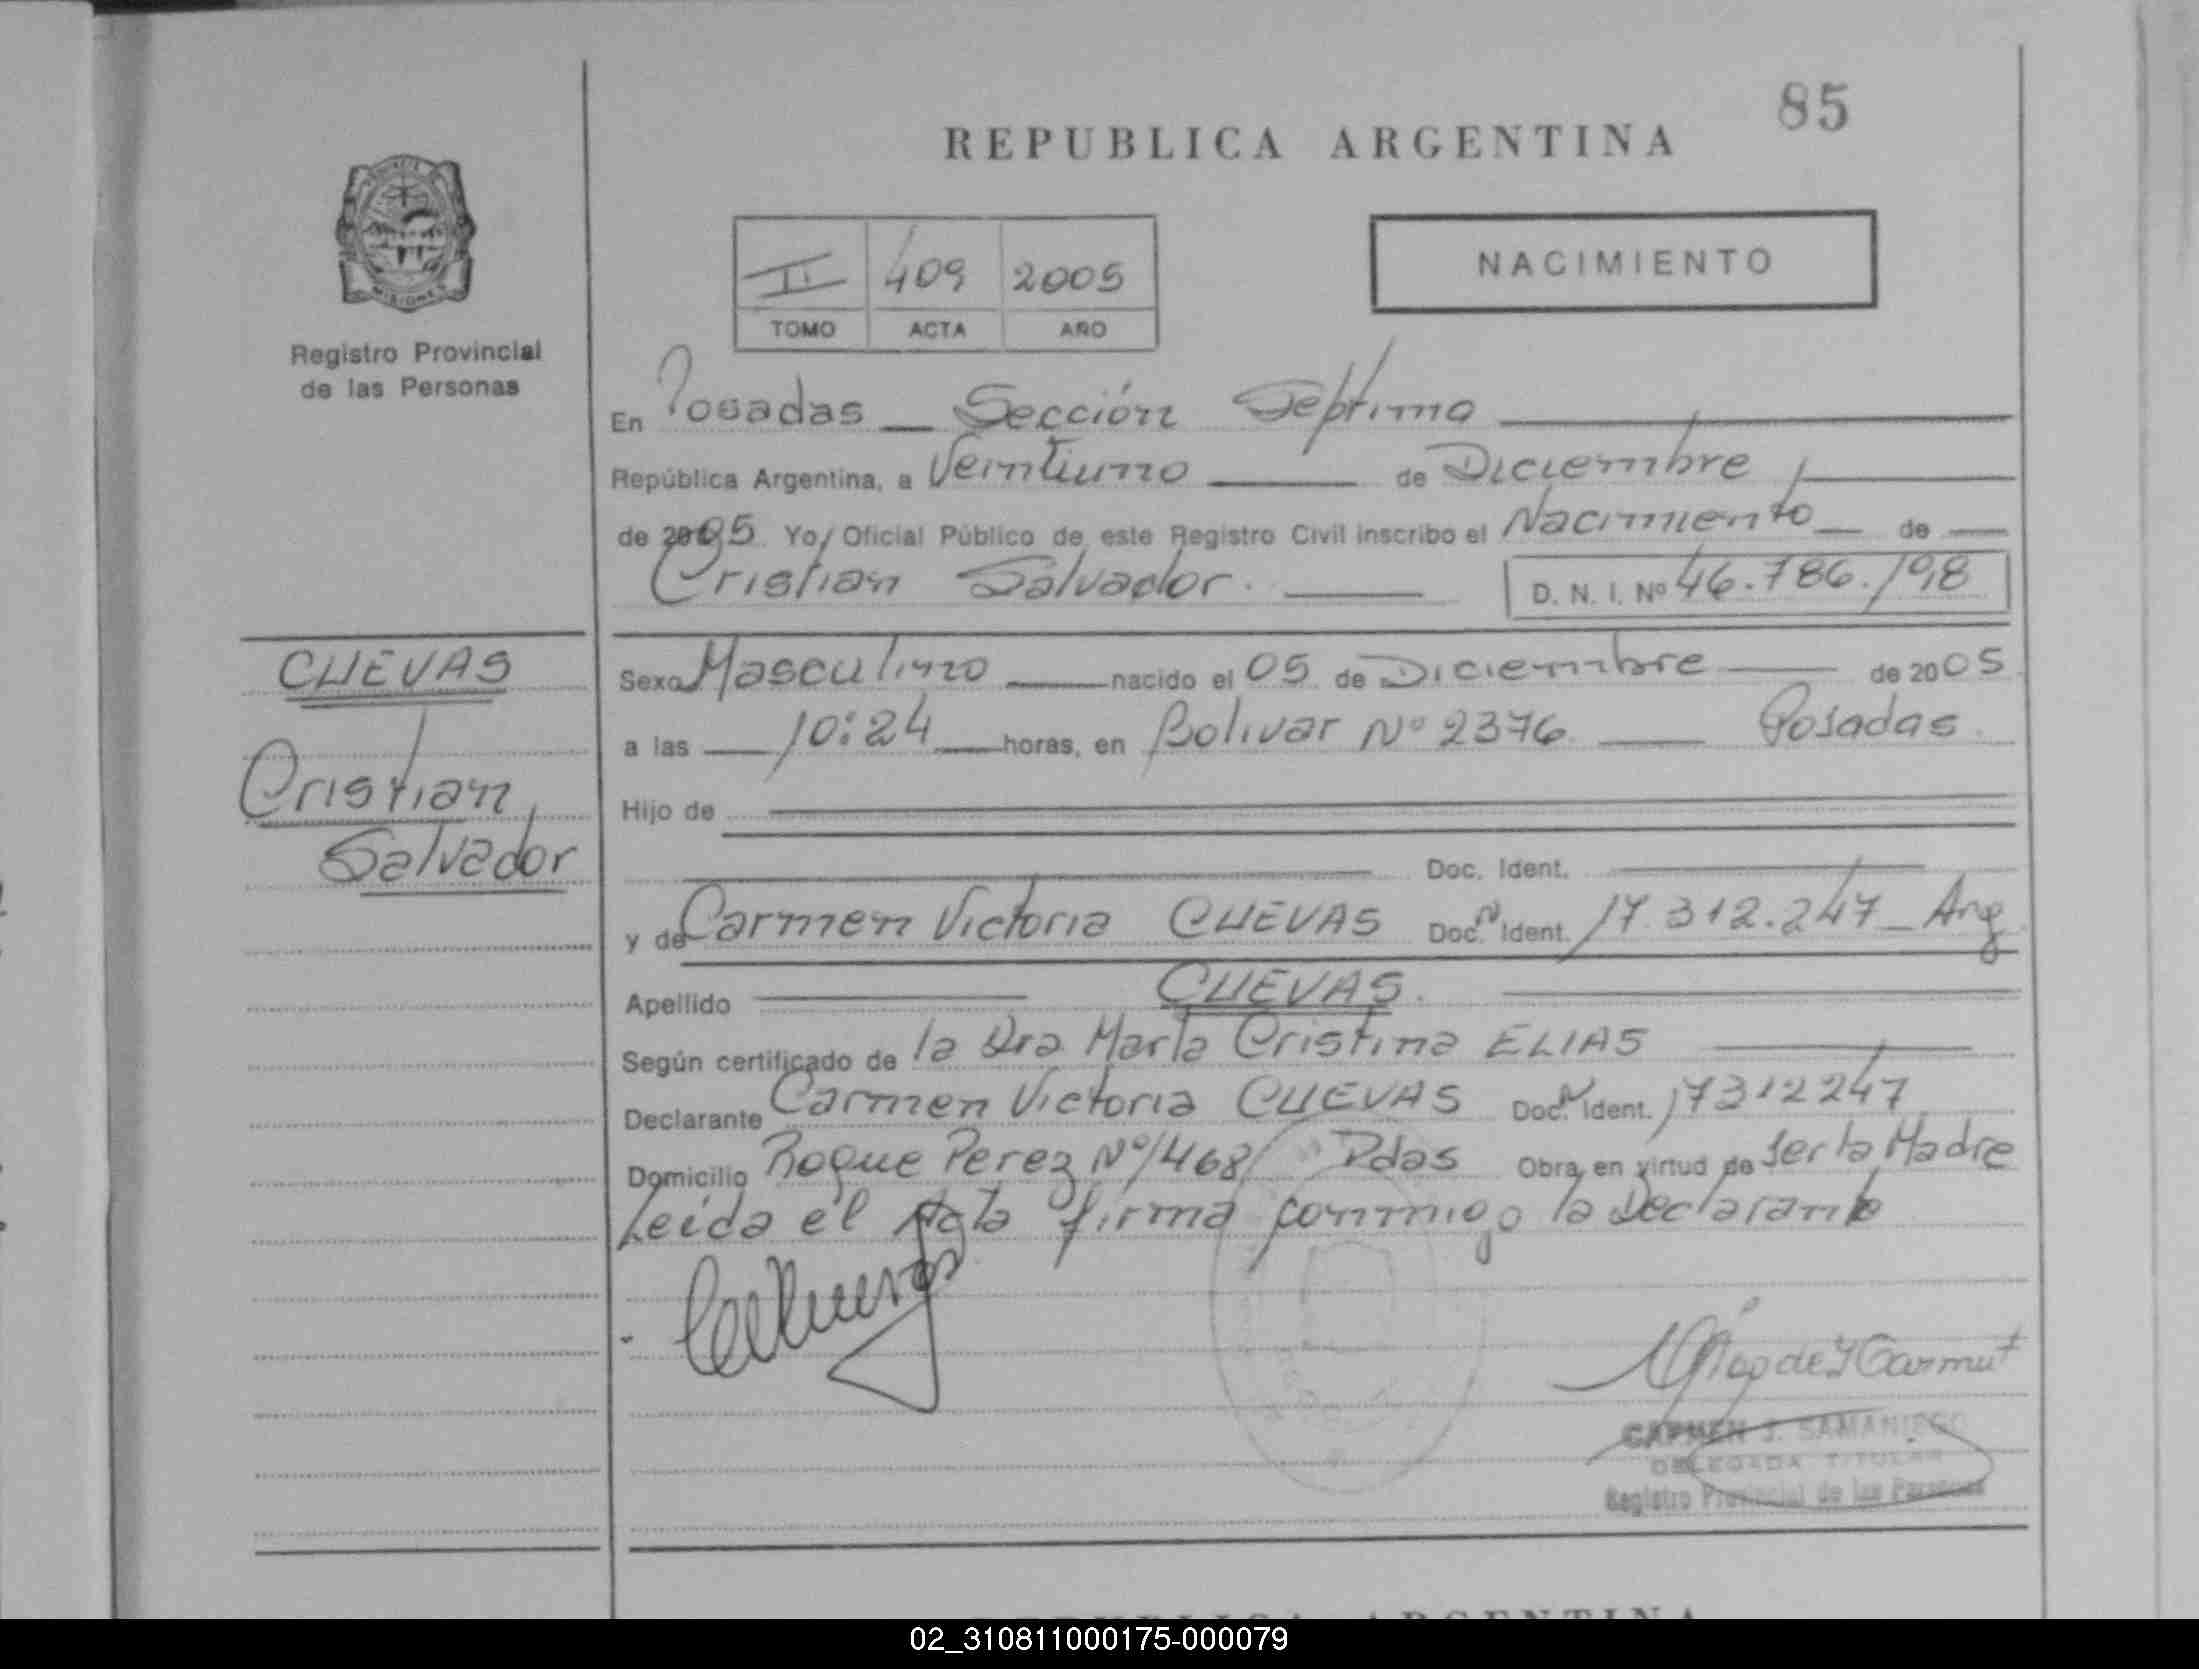 85
REPUBLICA ARGENTINA
MISIONES
Registro Provincial
de las Personas
II 409 2005
TOMO ACTA AÑO
NACIMIENTO
En Posadas — Sección Septima
República Argentina, a Veintiuno de Diciembre
de 2005 Yo, Oficial Público de este Registro Civil inscribo el Nacimiento de
Cristian Salvador. D. N. I. Nº 46.786.198
CUEVAS
Cristian
Salvador
Sexo Masculino nacido el 05 de Diciembre de 2005
a las 10:24 horas, en Bolivar Nº 2376 Posadas.
Hijo de
Doc. Ident.
y de Carmen Victoria CUEVAS Doc. N Ident. 17.312.247 — Arg
Apellido CUEVAS.
Según certificado de la Dra Marta Cristina ELIAS
Declarante Carmen Victoria CUEVAS Doc. N Ident. 17312247
Domicilio Roque Perez Nº 1468 Pdas Obra en virtud de ser la Madre
Leída el Acta firma conmigo la Declarante
CARMEN J. SAMANIEGO
DELEGADA TITULAR
Registro Provincial de las Personas
REPUBLICA ARGENTINA
02_310811000175-000079